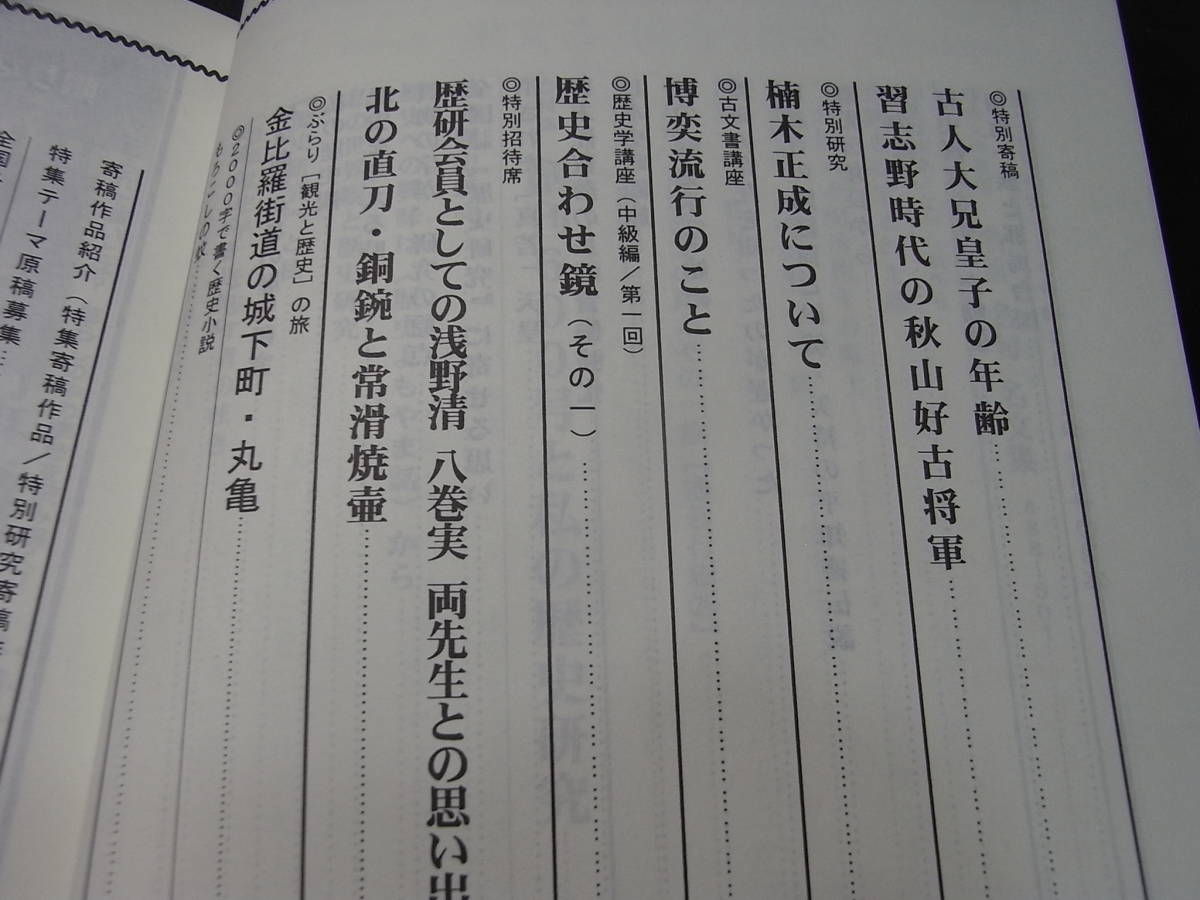 ◎特別寄稿
古人大兄皇子の年齢
習志野時代の秋山好古将軍
◎特別研究
楠木正成について
◎古文書講座
博奕流行のこと
◎歴史学講座(中級編/第一回)
歴史合わせ鏡(その一)
◎特別招待席
歴研会員としての浅野清 八巻実 両先生との思い出
北の直刀・銅鋺と常滑焼壷
◎ぶらり[観光と歴史]の旅
金比羅街道の城下町・丸亀
◎2000字で書く歴史小説
寄稿作品紹介(特集寄稿作品/特別研究寄稿作
特集テーマ原稿募集
全国